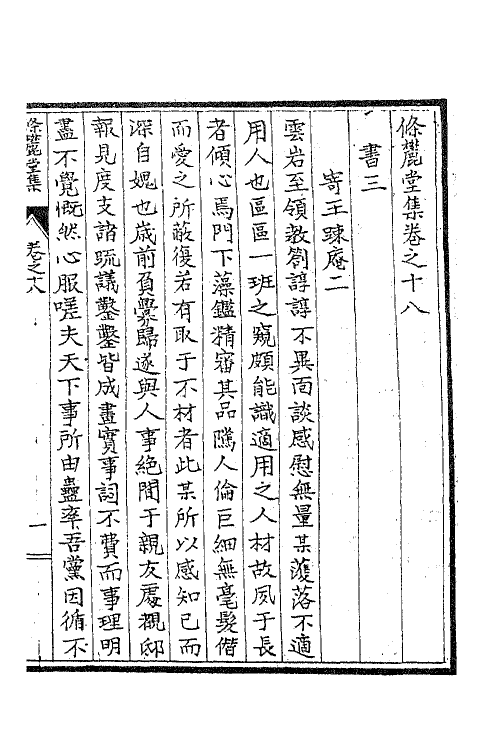 條麓堂集卷之十八
書三
寄王疎庵二
雲岩至領教劄諄諄不異面談感慰無量某濩落不適
用人也區區一班之窺頗能識適用之人材故夙于長
者傾心焉門下藻鑑精審其品隲人倫巨細無毫髮僭
而愛之所蔽復若有取于不材者此某所以感知已而
深自媿也歲前負釁歸遂與人事絕間于親友處覩邸
報見度支諸疏議鑿鑿皆成畫實事詞不費而事理明
盡不覺慨然心服嗟夫天下事所由蠱率吾黨因循不
條麓堂集
卷之十八
一